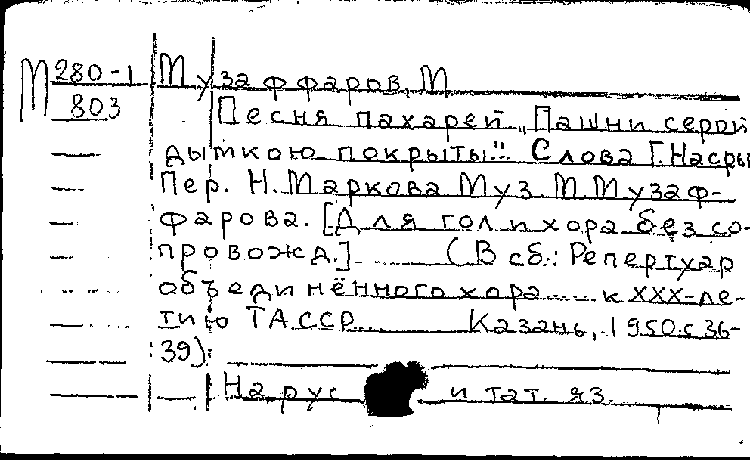 М 280-1 Музаффаров, М
803 Песня пахарей „Пашни серой
дымкою покрыты". Слова Г. Насры
Пер. Н. Маркова Муз. М. Музаф-
фарова. [Для гол и хора без со-
провожд.] (В сб.: Репертуар
объединённого хора к XXX-ле-
тию ТАССР Казань, 1950. с 36-
39).
На рус и тат. яз.